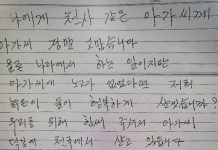 나에게 천사 같은 아가씨께
아가씨 정말 고맙습니다
물론 나라에서 하는 일이지만
아가씨에 노고가 없었다면 저희
늙은이 들이 행복하게 살겠습니까?
우리를 위해 힘써 주셔서 아가씨
덕분에 천국에서 살고 있습니다